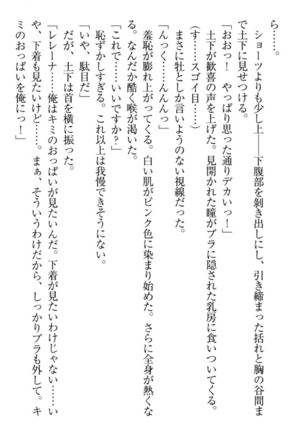 ら……。
　ショーツよりも少し上――下腹部を剥き出しにし、引き締まった括れと胸の谷間ま
で土下に見せつける。
「おおっ！　やっぱり思った通りデカいっ！」
　土下が歓喜の声を上げた。見開かれた瞳がブラに隠された乳房に食いついてくる。
（す……スゴイ目……）
　まさに牡としか言いようのない視線だった。
「んっく……んんんっ」
　羞恥が膨れ上がってくる。白い肌がピンク色に染まり始めた。さらに全身が熱くな
る。なんだか酷く喉が渇いた。
「これで……いいですか？」
　恥ずかしすぎる。これ以上は我慢できそうにない。
「いや、駄目だ」
　だが、土下は首を横に振った。
「レレーナ……俺はキミのおっぱいが見たいんだ。下着が見たいわけじゃない……い
や、下着も見たいけど……。まぁ、そういうわけだから、しっかりブラも外して。キ
ミのおっぱいを俺にっ！」